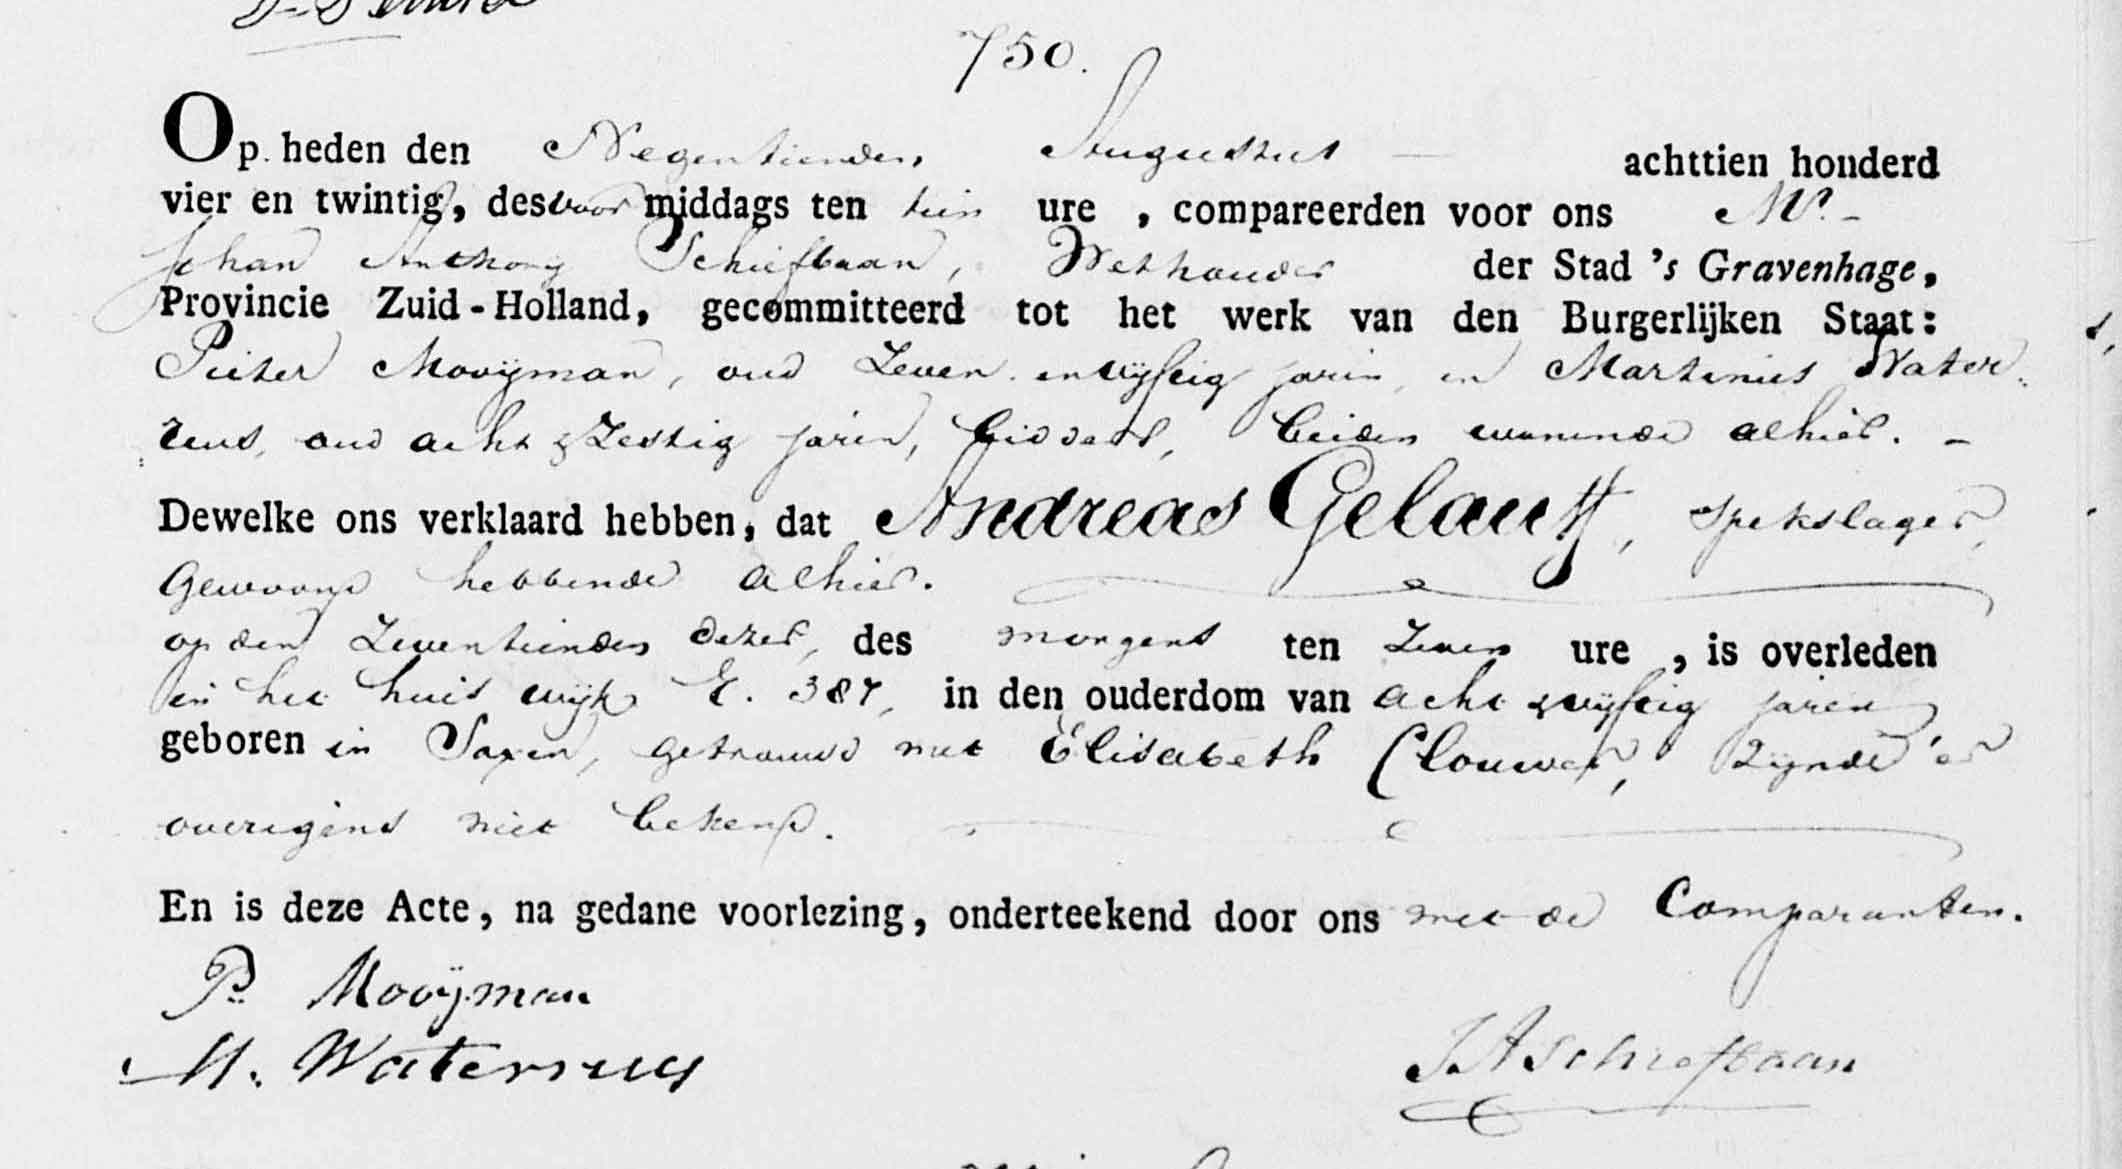 750.
Op heden den Negentienden Augustus — achttien honderd
vier en twintig, des voor middags ten tien ure , compareerden voor ons Mr. -
Johan Anthony Schiefbaan, Wethouder der Stad 's Gravenhage,
Provincie Zuid-Holland, gecommitteerd tot het werk van den Burgerlijken Staat:
Pieter Mooijman, oud Zeven en vijftig jaren, en Martinus Water.
zeus, oud acht & Zestig jaren, bidders, beiden wonende alhier. -
Dewelke ons verklaard hebben, dat Andreas Gelauff, spekslager,
Gewoond hebbende alhier.
op den Zeventienden dezer, des morgens ten Zeven ure , is overleden
in het huis wijk E. 387, in den ouderdom van acht & vijftig jaren
geboren in Saxen, getrouwd met Elisabeth Clouwer, Zijnde 'er
overigens niet bekend.
En is deze Acte, na gedane voorlezing, onderteekend door ons met de Comparanten.
P. Mooijman
M. Waterreus
JASchiefbaan